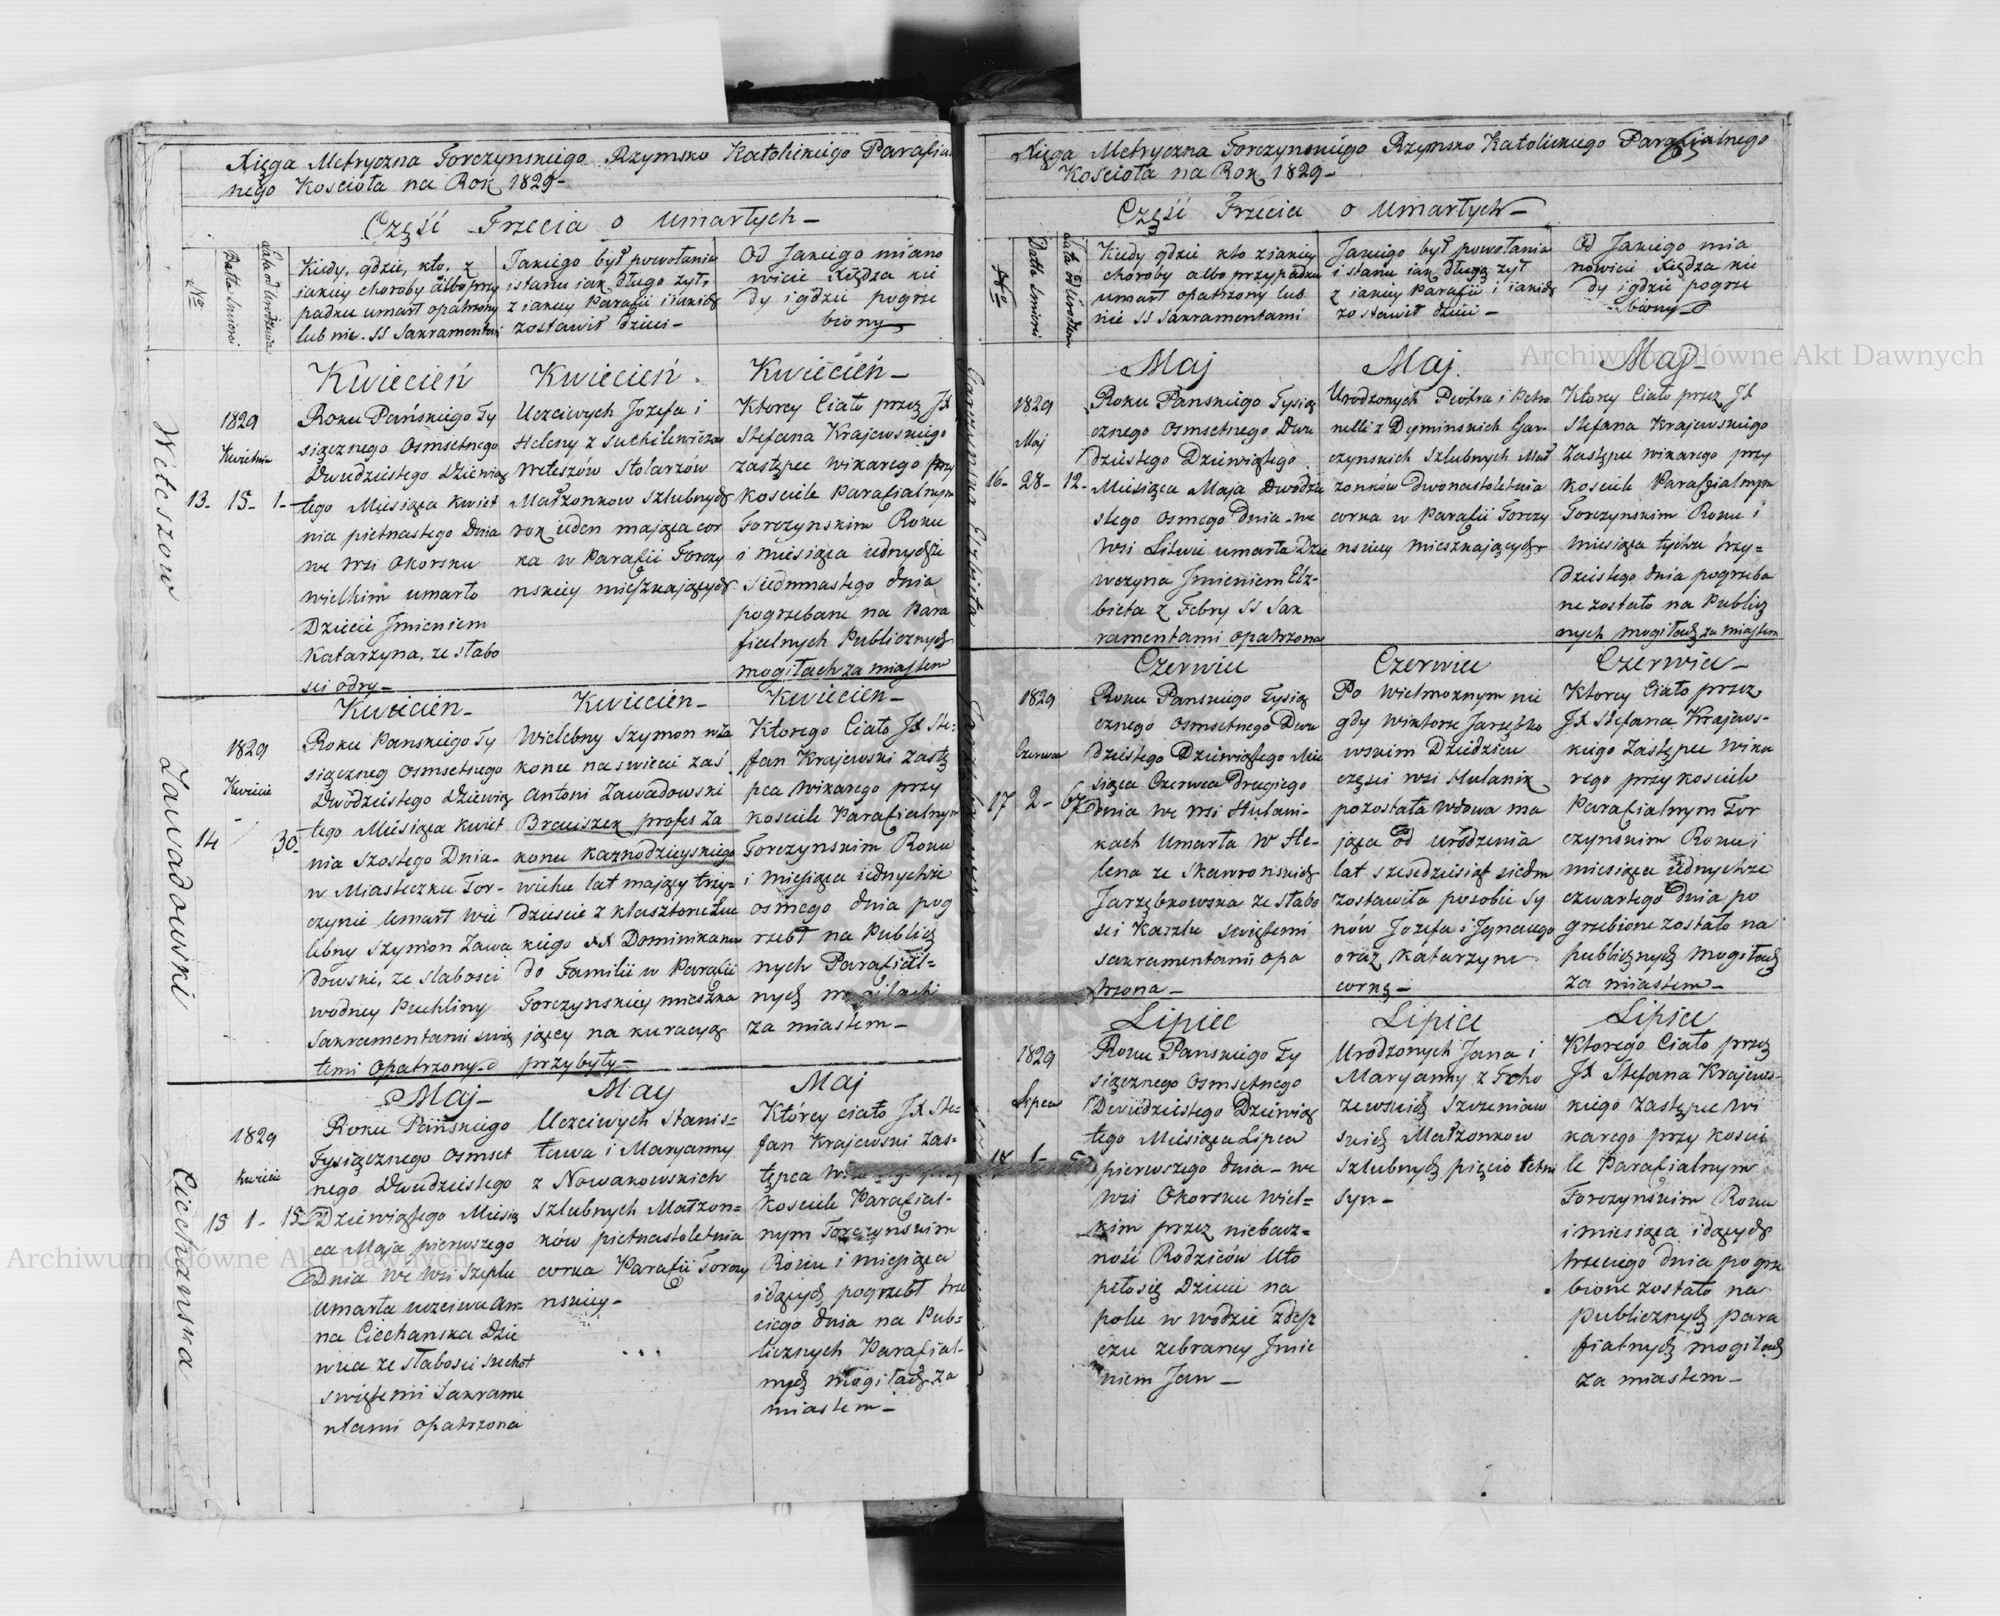 Xięga Metryczna Torczynskiego Rzymsko Katolickiego Parafial
nego Koscioła na Rok 1829-
Część Trzecia o umarłych-
No
Datta Smierci
Lata od Urodzenia
Kiedy, gdzie, kto, z
iakiey choroby albo przy
padku umarł opatrzony
lub nie. SS Sakramentami
Jakiego był powołania
i stanu iak długo żył,
z iakiey Parafii i iakich
zostawił dzieci-
Od Jakiego miano
wicie Xiędza kie
dy i gdzie pogrze
biony-
Weteszow
1829
Kwietnia
13- 15- 1-
Kwiecień
Roku Pańskiego Ty
siącznego Osmsetnego
Dwudziestego Dziewią
tego Miesiąca Kwiet
nia pietnastego Dnia
we wsi Okorsku
wielkim umarło
Dziecie Jmieniem
Katarzyna, ze słabo
sci odry-
Kwiecień
Uczciwych Jozefa i
Heleny z Suchilewiczow
Weteszów Stolarzów
Małżonkow szlubnych
rok ieden maiąca cor
ka w Parafii Torczy
nskiey mieszkaiących
Kwiecień-
Ktorey Ciało przez JX
Stefana Kraiewskiego
zastępce wikarego przy
kosciele Parafialnym
Torczynskim Roku
i miesiąca iednychże
siedmnastego dnia
pogrzebane na Para
fialnych Publicznych
mogiłach za miastem
Zawadowski
1829
Kwiecie
14 30-
Kwiecien-
Roku Panskiego Ty
siączneg Osmsetnego
Dwódziestego Dziewią
tego Miesiąca Kwiet
nia Szostego Dnia-
w Miasteczku Tor-
czynie Umarł Wie
lebny Szymon Zawa
dowski, ze słabosci
wodney Puchliny
Sakramentami swię
temi Opatrzony-
Kwiecien-
Wielebny Szymon wza
konie na swiecie zaś
Antoni Zawadowski
Braciszek profes Za
konu Kaznodzieyskiego
wieku lat maiący trzy=
dziescie z klasztoru Łuc
kiego XX Dominikanow
do Familii w Parafii
Torczynskiey mieszka
jącey na kuracyą
przybyły-
Kwiecien-
Ktorego Ciało JX Ste=
fan Kraiewski Zastę
pca wikarego przy
kosciele Parafialnym
Torczynskim Roku
i miesiąca iednychże
osmego dnia pog
rzebł na Publicz
nych Parafial=
nych mogiłach
za miastem-
Ciechanska
1829
Kwiecie
15 1- 15-
Maj-
Roku Pańskiego
Tysiącznego Osmset
nego Dwudziestego
Dziewiątego Miesią
ca Maja pierwszego
Dnia we wsi Szeplu
umarła uczciwa An-
na Ciechanska Dzie
wica ze słabosci suchot
swiętemi Sakrame
ntami opatrzona
May
Uczciwych Stanis-
ława i Maryanny
z Nowakowskich
szlubnych Małżon=
ków pietnastoletnia
corka Parafii Torczy
nskiey-
Maj
Którey ciało JX Ste=
fan Kraiewski Zas=
tępca
Kosciele Parafial-
nym Torczynskim
Roku i miesiąca
idących pogrzebł trze
ciego dnia na Pub=
licznych Parafial-
nych mogiłach za
miastem-
Xięga Metryczna Torczynskiego Rzymsko Katolickiego Parafialnego
Koscioła na Rok 1829-
Część Trzecia o umarłych-
No
Datta Smierci
Lata od Urodzen
Kiedy gdzie kto z iakiey
choroby albo przypadku
umarł opatrzony lub
nie SS Sakramentami
Jakiego był powołania
i stanu iak długo żył
z iakiey Parafii i iakich
zostawił dzieci-
Od Jakiego mia
nowicie Xiędza kie
dy i gdzie pogrze
biony-
Garczynska Elzbieta
1829
Maj
16- 28- 12-
Maj
Roku Panskiego Tysią
cznego Osmsetnego Dwu
dziestego Dziewiątego
Miesiąca Maja Dwudzie
stego Osmego dnia-we
Wsi Litwie umarła Dzie
wczyna Jmieniem Elz-
bieta z Febry SS Sak
ramentami opatrzona
Maj.
Urodzonych Piotra i Petro
nelli z Dyminskich Gar-
czynskich Szlubnych Mał
żonków dwonastoletnia
corka w Parafii Torczy
nskiey mieszkaiących
Maj-
Którey Ciało przez JX
Stefana Kraiewskiego
Zastępce wikarego przy
kosciele Parafialnym
Torczynskim Roku i
miesiąca tychże trzy=
dziestego dnia pogrzeba
ne zostało na Publicz
nych mogiłach za miastem
1829
Czerwca
17 2- 67
Czerwiec
Roku Panskiego Tysią
cznego Osmsetnego Dwu
dziestego Dziewiątego Mie
siąca Czerwca Drugiego
dnia we wsi Hulani-
kach Umarła W He-
lena ze Skawronskich
Jarzębkowska ze słabo
sci Kaszlu swiętemi
sakramentami opa
trzona-
Czerwiec
Po Wielmożnym nie
gdy Wiktorze Jarzębko
wskim Dziedzicu
częsci wsi Hulanik
pozostała Wdowa ma
jąca od urodzenia
lat szescdziesiąt siedm
zostawiła posobie Sy
nów Jozefa i Jgnacego
oraz Katarzyne
corkę-
Czerwiec-
Ktorey Ciało przez
JX Stefana Kraiews-
kiego Zastępce Wika
rego przy kosciele
Parafialnym Tor
czynskim Roku i
miesiąca iednychże
czwartego dnia po
grzebione zostało na
publicznych mogiłach
za miastem-
1829
Lipca
18 1- 5
Lipiec
Roku Panskiego Ty
siącznego Osmsetnego
Dwudziestego Dziewią
tego Miesiąca Lipca
pierwszego dnia-we
Wsi Okorsku Wiel=
kim przez niebacz=
ność Rodziców Uto
piło się Dziecie na
polu w wodzie z desz
czu zebraney Jmie
niem Jan-
Lipiec
Urodzonych Jana i
Maryanny z Tcho
rzewskich Szczeniow
skich Małżonkow
szlubnych pięcioletni
Syn-
Lipiec
Ktorego Ciało przez
JX Stefana Kraiews-
kiego Zastępce Wi
karego przy kosci
le Parafialnym
Torczynskim Roku
i miesiąca idących
trzeciego dnia pogrze
bione zostało na
publicznych para
fialnych mogiłach
za miastem-
Archiwum Główne Akt Dawnych
Archiwum Główne Akt Dawnych